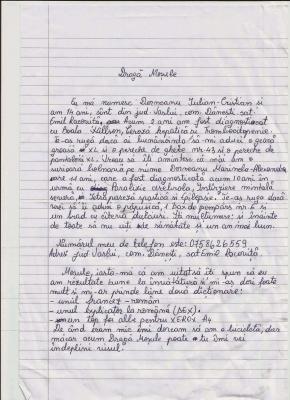 Dragă Moșule
Eu mă numesc Dorneanu Iulian-Cristian și
am 14 ani, sunt din jud. Vaslui, com. Dănești sat
Emil Racoviță, Acum 2 ani am fost diagnosticat
cu Boala Wilson, Ciroză hepatică și Trombocitopenie.
Te-aș ruga dacă ai bunăvoința să-mi aduci o geacă
groasă XL și o pereche de ghete nr. 43 și o pereche de
pantaloni XL. Vreau să îți amintesc că mai am o
surioară bolnavă pe nume Dorneanu Marinela-Alexandra,
are 11 ani, care a fost diagnosticată acum 10 ani în
urmă cu Paralizie cerebrală, Întârziere mintală
severă, Tetrapareză spastică și Epilepsie. Te-aș ruga dacă
poți să îi aduci o păpușică, 1 bax de pampers nr. și
un brad cu câteva dulciuri. Îți mulțumesc și înainte
de toate să nu uiți de sănătate și un an mai bun.
Numărul meu de telefon este: 0758426559
Adres jud Vaslui, com. Dănești, sat Emil Racoviță
Moșule, iartă-mă că am uitat să îți spun că eu
am rezultate bune la învățătură și mi-aș dori foarte
mult și mi-ar prinde bine două dicționare:
- unul francez - român
- unul explicativ la română (DEX).
- un top foi albe pentru XEROX A4
De când eram mic îmi doream să am o bicicletă, dar
măcar acum Dragă Moșule poate tu îmi vei
îndeplini visul.